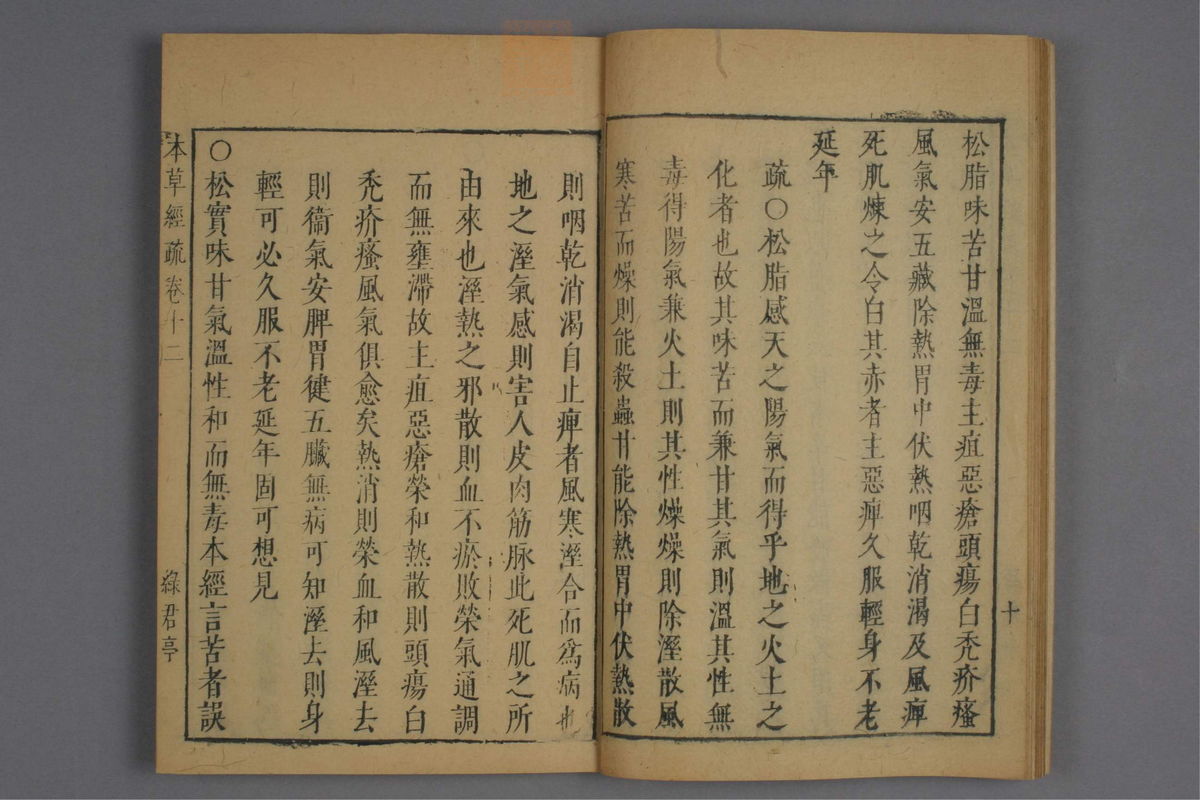 松脂味苦甘溫無毒主疽惡瘡頭瘍白禿疥瘙
風氣安五藏除熱胃中伏熱咽乾消渴及風痺
死肌煉之令白其赤者主惡痺久服輕身不老
延年
疏○松脂感天之陽氣而得乎地之火土之
化者也故其味苦而兼甘其氣則溫其性無
毒得陽氣兼火土則其性燥燥則除溼散風
寒苦而燥則能殺蟲甘能除熱胃中伏熱散
十
則咽乾消渴自止痺者風寒溼合而爲病也
地之溼氣感則害人皮肉筋脉此死肌之所
由來也溼熱之邪散則血不瘀敗榮氣通調
而無壅滯故主疽惡瘡榮和熱散則頭瘍白
禿疥瘙風氣俱愈矣熱消則榮血和風溼去
則衞氣安脾胃健五臟無病可知溼去則身
輕可必久服不老延年固可想見
○松實味甘氣溫性和而無毒本經言苦者誤
本草經疏 卷十二 綠君亭